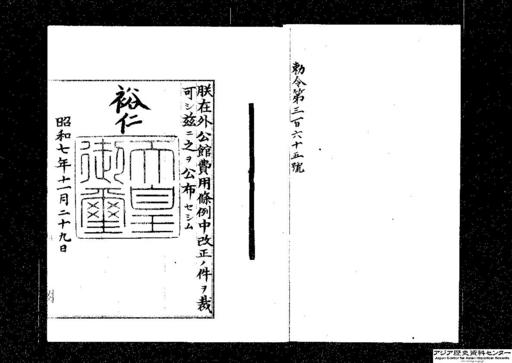 勅令第三百六十五號
朕在外公館費用條例中改正ノ件ヲ裁
可シ茲ニ之ヲ公布セシム
裕仁
天皇
御璽
昭和七年十一月二十九日
アジア歴史資料センター
Japan Center for Asian Historical Records